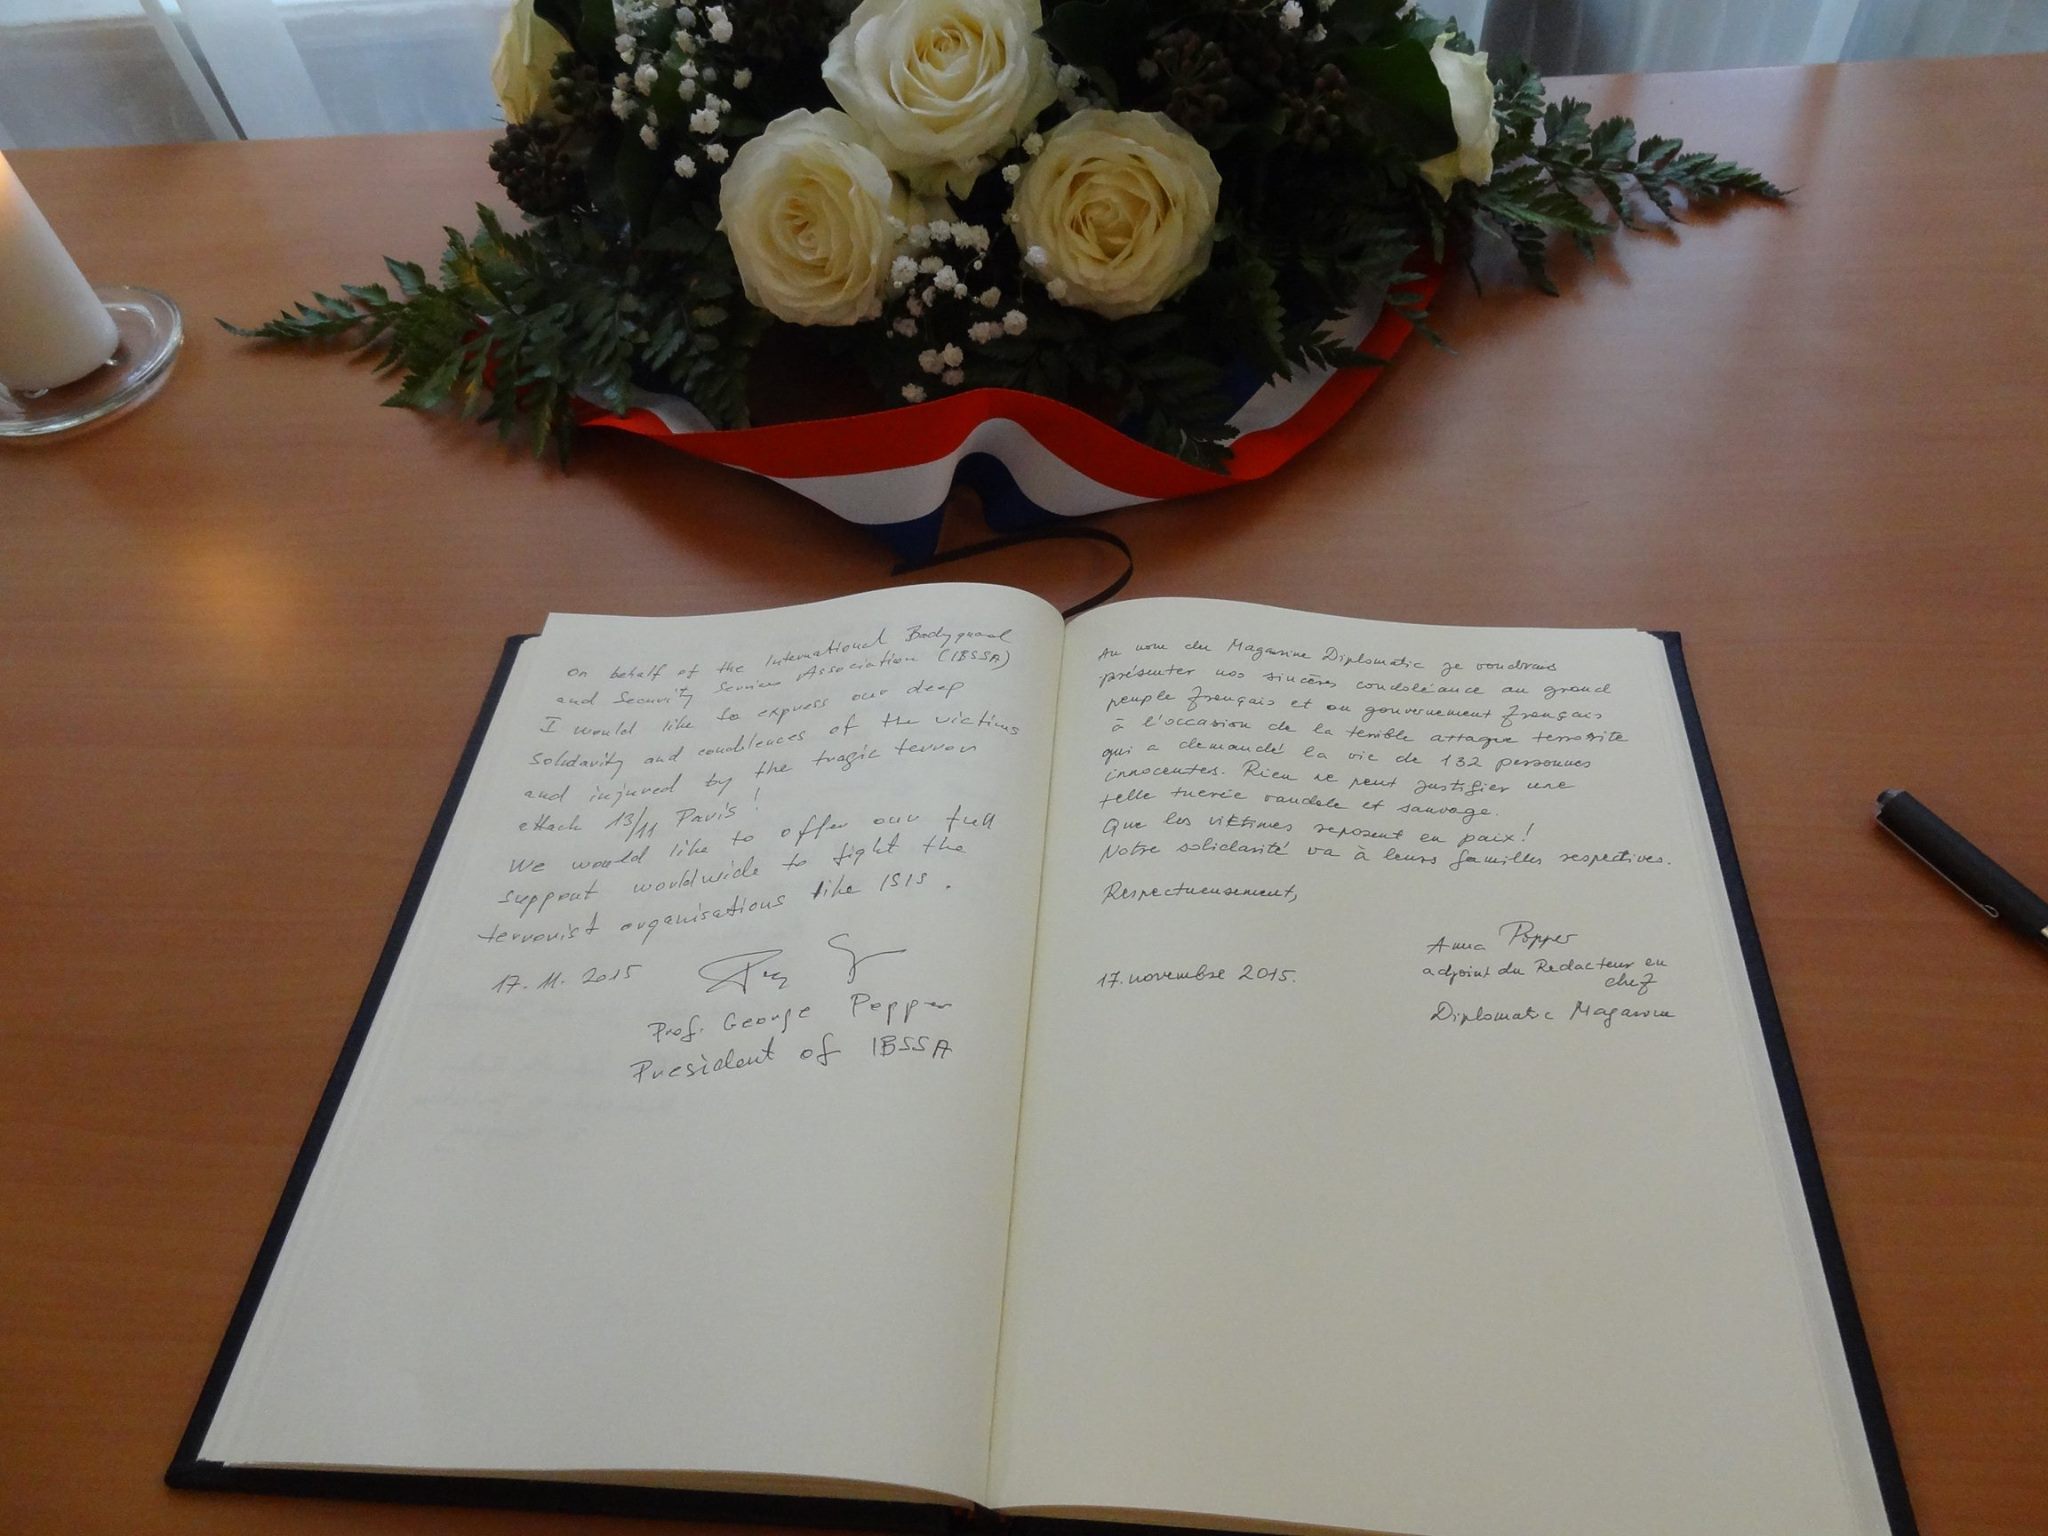 On behalf of the International Bodyguard
and Security Services Association (IBSSA)
I would like to express our deep
solidarity and condolences of the victims
and injured by the tragic terror
attack 13/11 Paris!
We would like to offer our full
support worldwide to fight the
terrorist organisations like ISIS.
17. 11. 2015
Prof. George Popper
President of IBSSA
Au nom du Magazine Diplomatic je voudrais
présenter nos sincères condoléance au grand
peuple français et au gouvernement français
à l'occasion de la terrible attaque terroriste
qui a demandé la vie de 132 personnes
innocentes. Rien ne peut justifier une
telle tuerie vandale et sauvage.
Que les victimes reposent en paix!
Notre solidarité va à leurs familles respectives.
Respectueusement,
Anna Popper
adjoint du Redacteur en
chef
17. novembre 2015.
Diplomatic Magazine